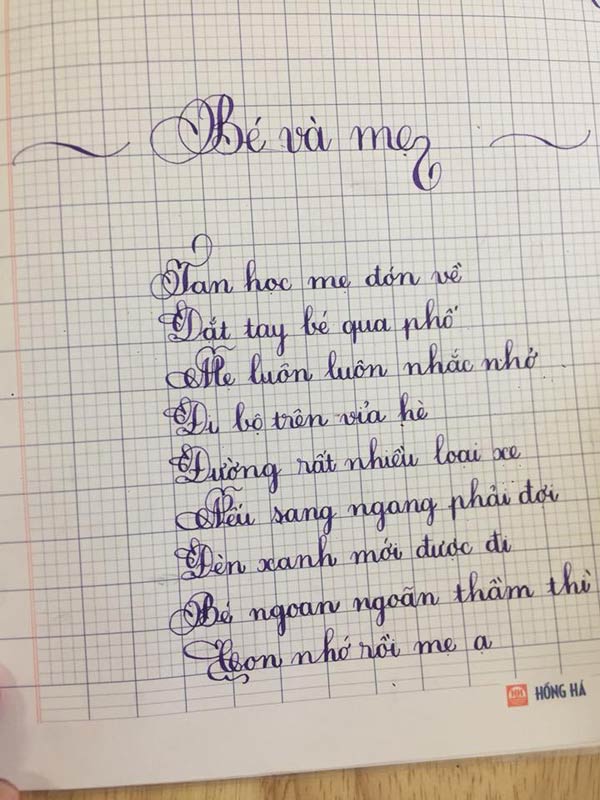 Bé và mẹ
Tan học mẹ đón về
Dắt tay bé qua phố
Mẹ luôn luôn nhắc nhở
Đi bộ trên vỉa hè
Đường rất nhiều loại xe
Nếu sang ngang phải đợi
Đèn xanh mới được đi
Bé ngoan ngoãn thầm thì
Con nhớ rồi mẹ ạ
HH HỒNG HÀ